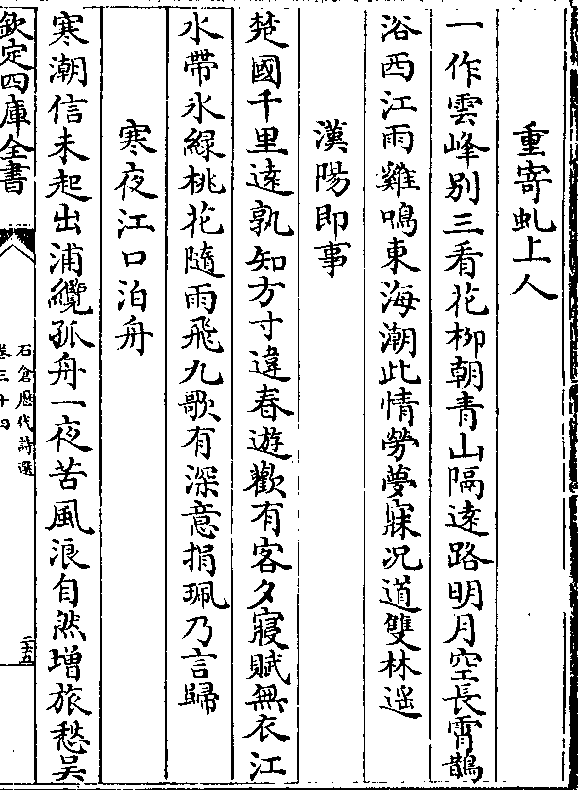 重寄虬上人
一作雲峰别三看花柳朝青山隔遠路明月空長霄鵲
浴西江雨雞鳴東海潮此情勞夢寐况道雙林遥
漢陽即事
楚國千里遠孰知方寸違春遊歡有客夕寢賦無衣江
水帶氷緑桃花隨雨飛九歌有深意捐珮乃言歸
寒夜江口泊舟
寒潮信未起出浦纜孤舟一夜苦風浪自然增旅愁吴
欽定四庫全書
石倉歷代詩選
卷三十四
二十五